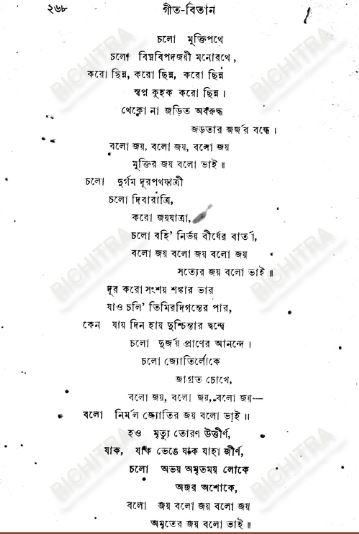 ২৬৮ গীত-বিতান
চলো মুক্তিপথে
চলো বিঘ্নবিপদজয়ী মনোরথে,
করো ছিন্ন, করো ছিন্ন, করো ছিন্ন
স্বপ্ন কুহক করো ছিন্ন।
থেকো না জড়িত অবরুদ্ধ
জড়তার জর্জর বন্ধে।
বলো জয়, বলো জয়, বলো জয়
মুক্তির জয় বলো ভাই॥
চলো দুর্গম দূরপথযাত্রী
চলো দিবারাত্রি,
করো জয়যাত্রা,
চলো বহি' নির্ভয় বীর্যের বার্তা,
বলো জয় বলো জয় বলো জয়
সত্যের জয় বলো ভাই॥
দূর করো সংশয় শঙ্কার ভার
যাও চলি' তিমিরদিগন্তের পার,
কেন যায় দিন হায় দুশ্চিন্তার দ্বন্দ্বে
চলো দুর্জয় প্রাণের আনন্দে।
চলো জ্যোতির্লোকে
জাগ্রত চোখে,
বলো জয়, বলো জয়, বলো জয়—
বলো নির্মল জ্যোতির জয় বলো ভাই॥
হও মৃত্যু তোরণ উত্তীর্ণ,
যাক, যাক ভেঙে যাক যাহা জীর্ণ,
চলো অভয় অমৃতময় লোকে
অজর অশোকে,
বলো জয় বলো জয় বলো জয়
অমৃতের জয় বলো ভাই॥
BICHITRA
BICHITRA
BICHITRA
BICHITRA
BICHITRA
BICHITRA